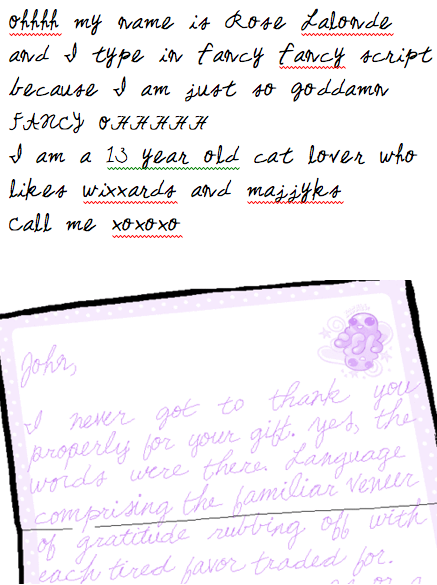 ohhhh my name is Rose Lalonde
and I type in fancy fancy script
because I am just so goddamn
FANCY OHHHHH
I am a 13 year old cat lover who
likes wixxards and majjyks
call me xoxoxo
John,
I never got to thank you
properly for your gift. yes, the
words were there. Language
comprising the familiar veneer
of gratitude rubbing off with
each tired favor traded for.